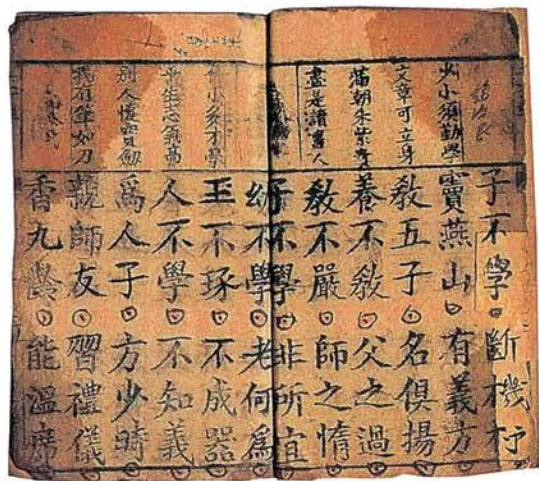 少小須勤學
文章可立身
滿朝朱紫貴
盡是讀書人
小多才學
平生志氣高
別人懷寶劍
我有筆如刀
子不學。斷機杼
竇燕山。有義方。
教五子。名俱揚。
養不教。父之過。
教不嚴。師之惰。
子不學。非所宜。
幼不學。老何爲。
玉不琢。不成器。
人不學。不知義。
爲人子。方少時。
親師友。習禮儀。
香九齡。能溫席。